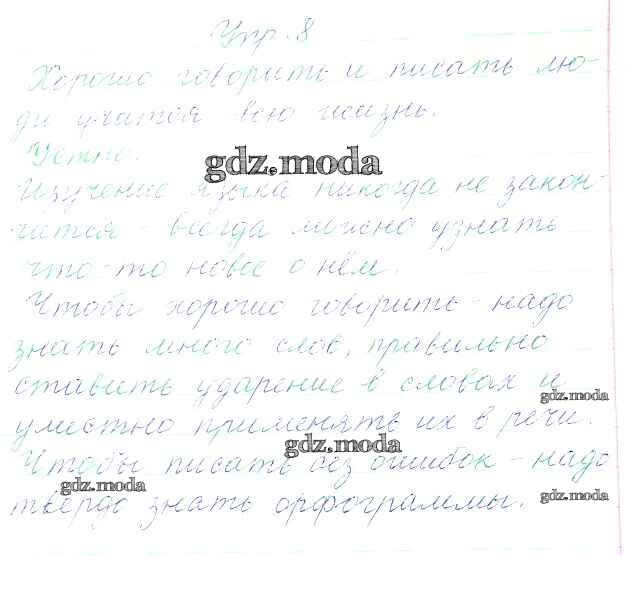 Упр. 8
Хорошо говорить и писать лю-
ди учатся всю жизнь.
Устно.
gdz.moda
Изучение языка никогда не закон-
чится - всегда можно узнать
что-то новое о нём.
Чтобы хорошо говорить - надо
знать много слов, правильно
ставить ударение в словах и
gdz.moda
уместно применять их в речи.
gdz.moda
Чтобы писать без ошибок - надо
gdz.moda
gdz.moda
твёрдо знать орфограммы.